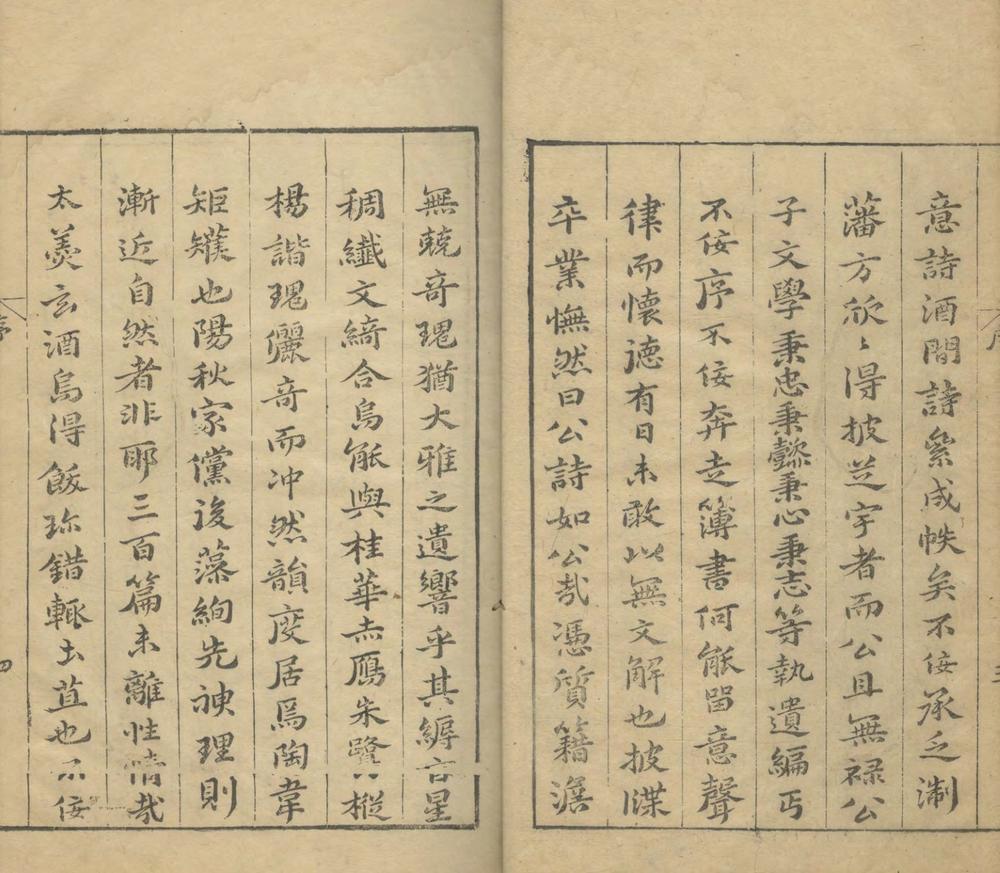 意詩酒間詩絫成帙矣不佞承乏淛
藩方欣〻得披芝宇者而公且無禄公
子文學秉忠秉懿秉心秉志等執遺編丐
不佞序不佞奔走簿書何能留意聲
律而懷德有日未敢以無文解也披牒
卒業憮然曰公詩如公哉憑質籍澹
無兢奇瑰猶大雅之遺響乎其縟言星
稠纖文綺合烏能與桂華赤鴈朱鷺〻樅
楊諧瑰儷奇而冲然韻度居焉陶韋
矩矱也陽秋家儻後藻絢先神理則
漸近自然者非耶三百篇未離性情哉
太羹玄酒烏得飯珍錯輒土苴也不佞
序
三
四